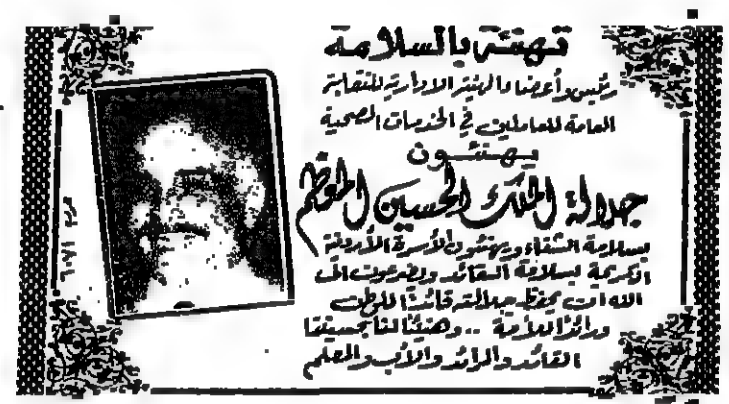 تهنئة بالسلامة
رئيس وأعضاء الهيئة الادارية للنقابة
العامة للعاملين في الخدمات الصحية
يهنئون
جلالة الملك الحسين المعظم
بسلامة الشفاء ويهنئون الأسرة الأردنية
الكريمة بسلامة القائد ويضرعون الى
الله ان يحفظ جلالته قائداً للوطن
ورائداً للأمة .. وهنيئاً لنا بحسيننا
القائد والرائد والأب والمعلم